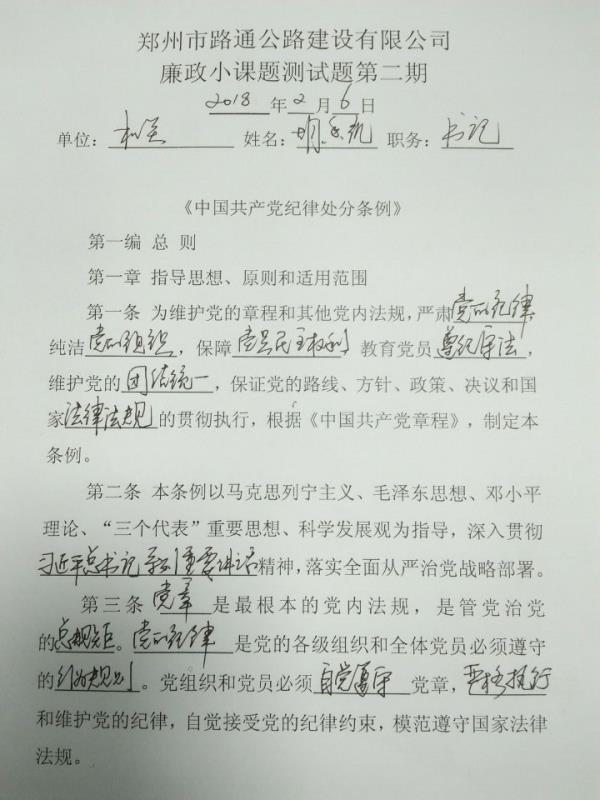 郑州市路通公路建设有限公司
廉政小课题测试题第二期
2018 年 2 月 6 日
单位: 机关 姓名: 胡 职务: 书记
《中国共产党纪律处分条例》
第一编 总 则
第一章 指导思想、原则和适用范围
第一条 为维护党的章程和其他党内法规，严肃党的纪律，
纯洁党的组织，保障党员民主权利，教育党员遵纪守法，
维护党的团结统一，保证党的路线、方针、政策、决议和国
家法律法规的贯彻执行，根据《中国共产党章程》，制定本
条例。
第二条 本条例以马克思列宁主义、毛泽东思想、邓小平
理论、“三个代表”重要思想、科学发展观为指导，深入贯彻
习近平总书记系列重要讲话精神，落实全面从严治党战略部署。
第三条 党章是最根本的党内法规，是管党治党
的总规矩。党的纪律是党的各级组织和全体党员必须遵守
的行为规则。党组织和党员必须自觉遵守党章，严格执行
和维护党的纪律，自觉接受党的纪律约束，模范遵守国家法律
法规。